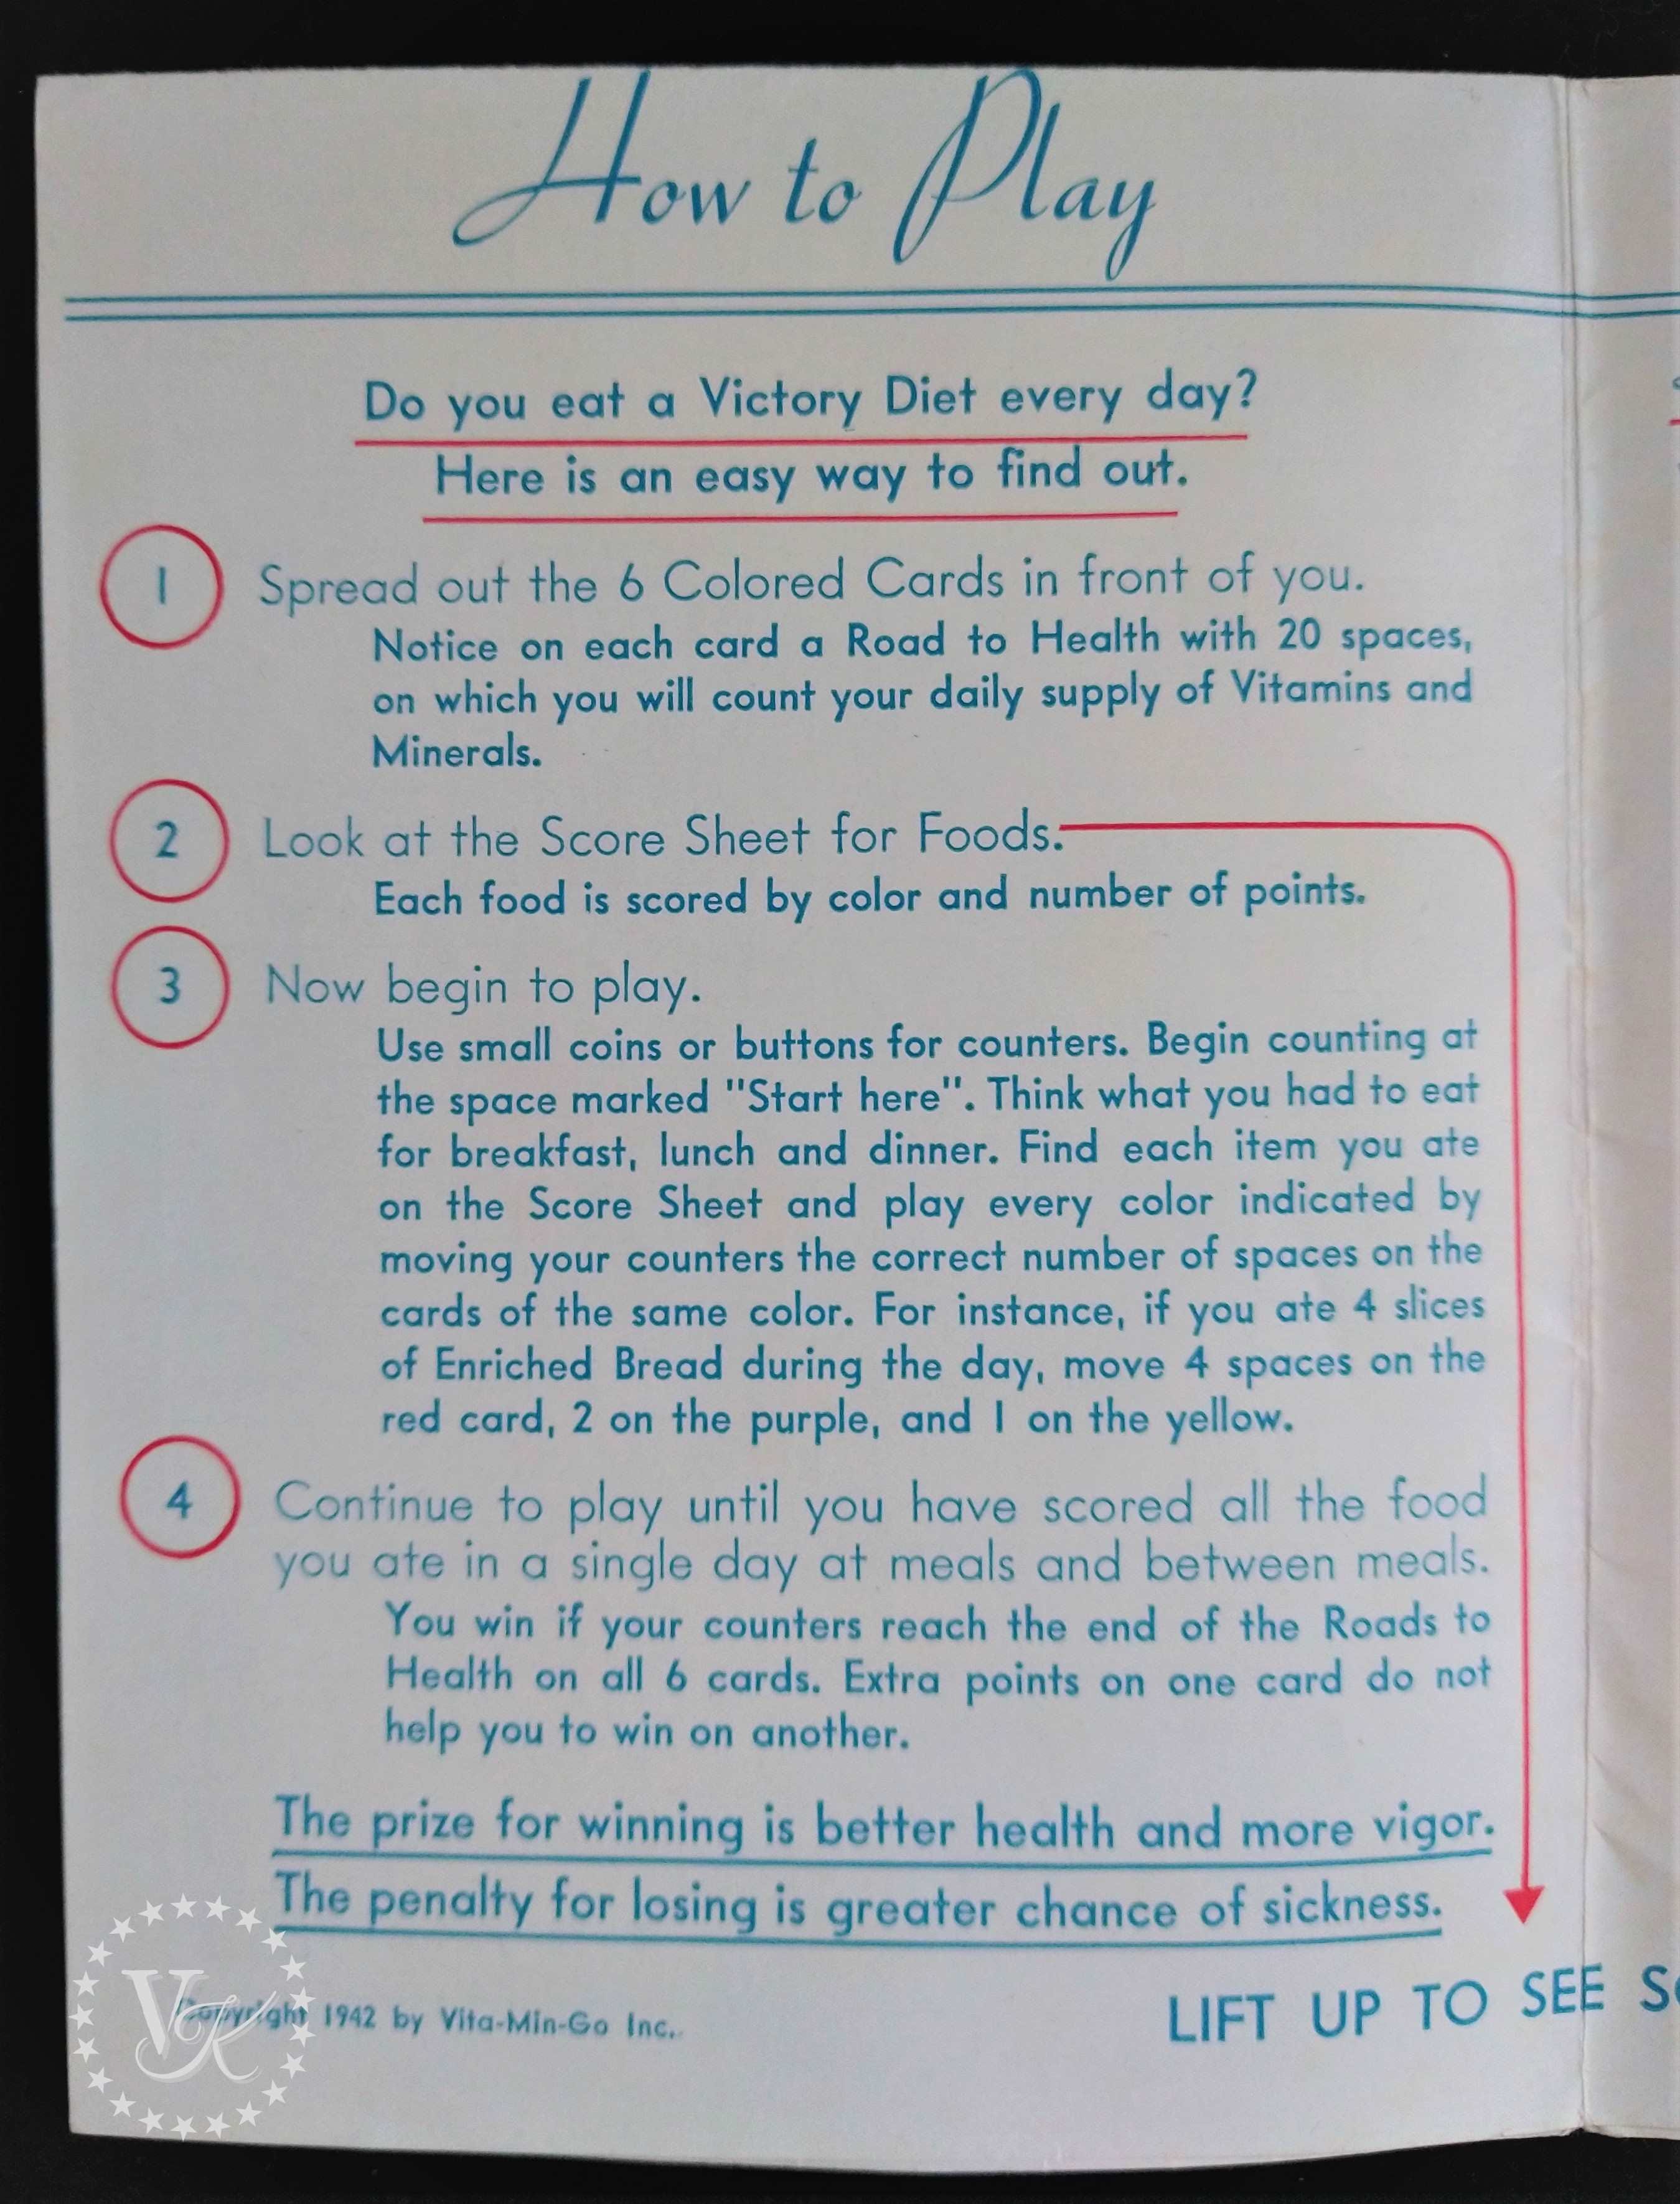 How to Play
Do you eat a Victory Diet every day?
Here is an easy way to find out.
1 Spread out the 6 Colored Cards in front of you.
Notice on each card a Road to Health with 20 spaces,
on which you will count your daily supply of Vitamins and
Minerals.
2 Look at the Score Sheet for Foods.
Each food is scored by color and number of points.
3 Now begin to play.
Use small coins or buttons for counters. Begin counting at
the space marked "Start here". Think what you had to eat
for breakfast, lunch and dinner. Find each item you ate
on the Score Sheet and play every color indicated by
moving your counters the correct number of spaces on the
cards of the same color. For instance, if you ate 4 slices
of Enriched Bread during the day, move 4 spaces on the
red card, 2 on the purple, and 1 on the yellow.
4 Continue to play until you have scored all the food
you ate in a single day at meals and between meals.
You win if your counters reach the end of the Roads to
Health on all 6 cards. Extra points on one card do not
help you to win on another.
The prize for winning is better health and more vigor.
The penalty for losing is greater chance of sickness.
VK
Copyright 1942 by Vita-Min-Go Inc.
LIFT UP TO SEE